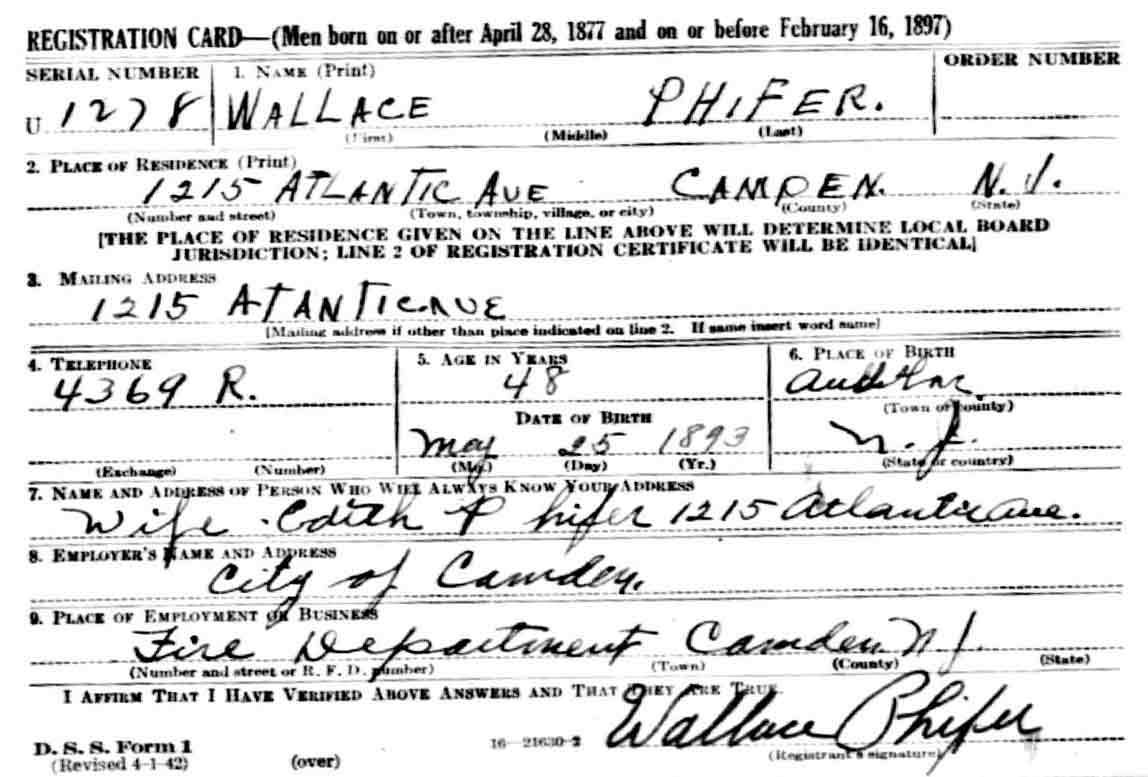 REGISTRATION CARD—(Men born on or after April 28, 1877 and on or before February 16, 1897)
SERIAL NUMBER 1. NAME (Print) ORDER NUMBER
U 1278 WALLACE PHIFER.
(First) (Middle) (Last)
2. PLACE OF RESIDENCE (Print)
1215 ATLANTIC AVE CAMDEN. N.J.
(Number and street) (Town, township, village, or city) (County) (State)
[THE PLACE OF RESIDENCE GIVEN ON THE LINE ABOVE WILL DETERMINE LOCAL BOARD
JURISDICTION; LINE 2 OF REGISTRATION CERTIFICATE WILL BE IDENTICAL]
3. MAILING ADDRESS
1215 ATANTIC AVE
[Mailing address if other than place indicated on line 2. If same insert word same]
4. TELEPHONE 5. AGE IN YEARS 6. PLACE OF BIRTH
4369 R. 48
(Town or county)
DATE OF BIRTH
May 25 1893 N.J.
(Exchange) (Number) (Mo.) (Day) (Yr.) (State or country)
7. NAME AND ADDRESS OF PERSON WHO WILL ALWAYS KNOW YOUR ADDRESS
Wife. Edith Phifer 1215 Atlantic Ave.
8. EMPLOYER'S NAME AND ADDRESS
City of Camden.
9. PLACE OF EMPLOYMENT OR BUSINESS
Fire Department Camden N.J.
(Number and street or R. F. D. number) (Town) (County) (State)
I AFFIRM THAT I HAVE VERIFIED ABOVE ANSWERS AND THAT THEY ARE TRUE.
Wallace Phifer
D. S. S. Form 1 16—21630-2 (Registrant's signature)
(Revised 4-1-42) (over)